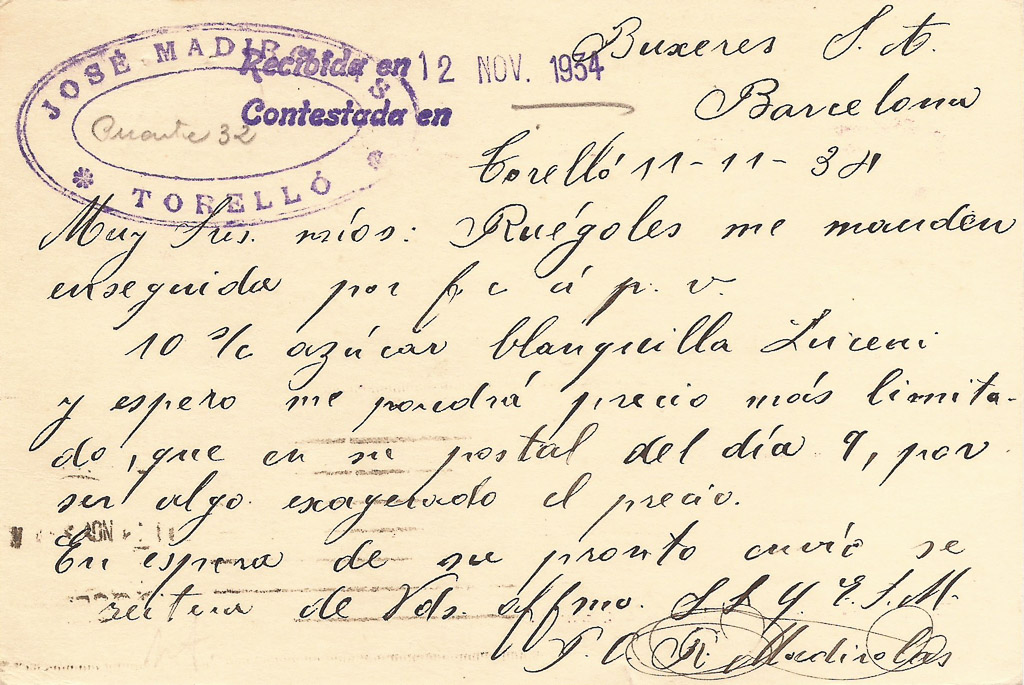 JOSÉ MADIROLAS
Puente 32
TORELLÓ
Recibida en 12 NOV. 1934
Contestada en
Buxeres S. A.
Barcelona
Torelló 11-11-34
Muy Srs. míos: Ruégoles me manden
enseguida por f c á p. v.
10 s/c azúcar blanquilla Luceni
y espero me pondrá precio más limita-
do, que en su postal del día 9, por
ser algo exagerado el precio.
En espera de su pronto envío se
reitera de Vds. affmo. S S Q. E. S. M.
P. O. R. Madirolas